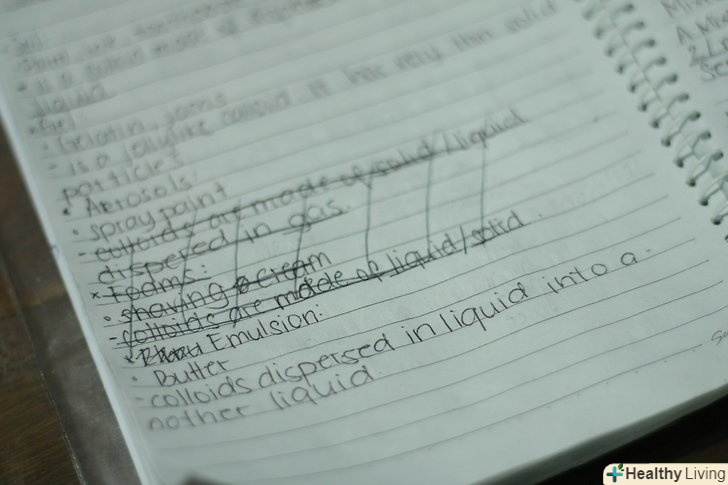 · Sol:
- is a solid made of
liquid
* Gel:
· Gelatin, jams
- is a jellylike colloid. It has very thin solid
particles
* Aerosols:
· spray paint
- colloids are made of solid/liquid
dispered in gas.
* Foams:
· shaving cream
- colloids are made of liquid/solid.
* Emulsion:
· Butter
- colloids dispersed in liquid into a-
nother liquid.
Healthy Living